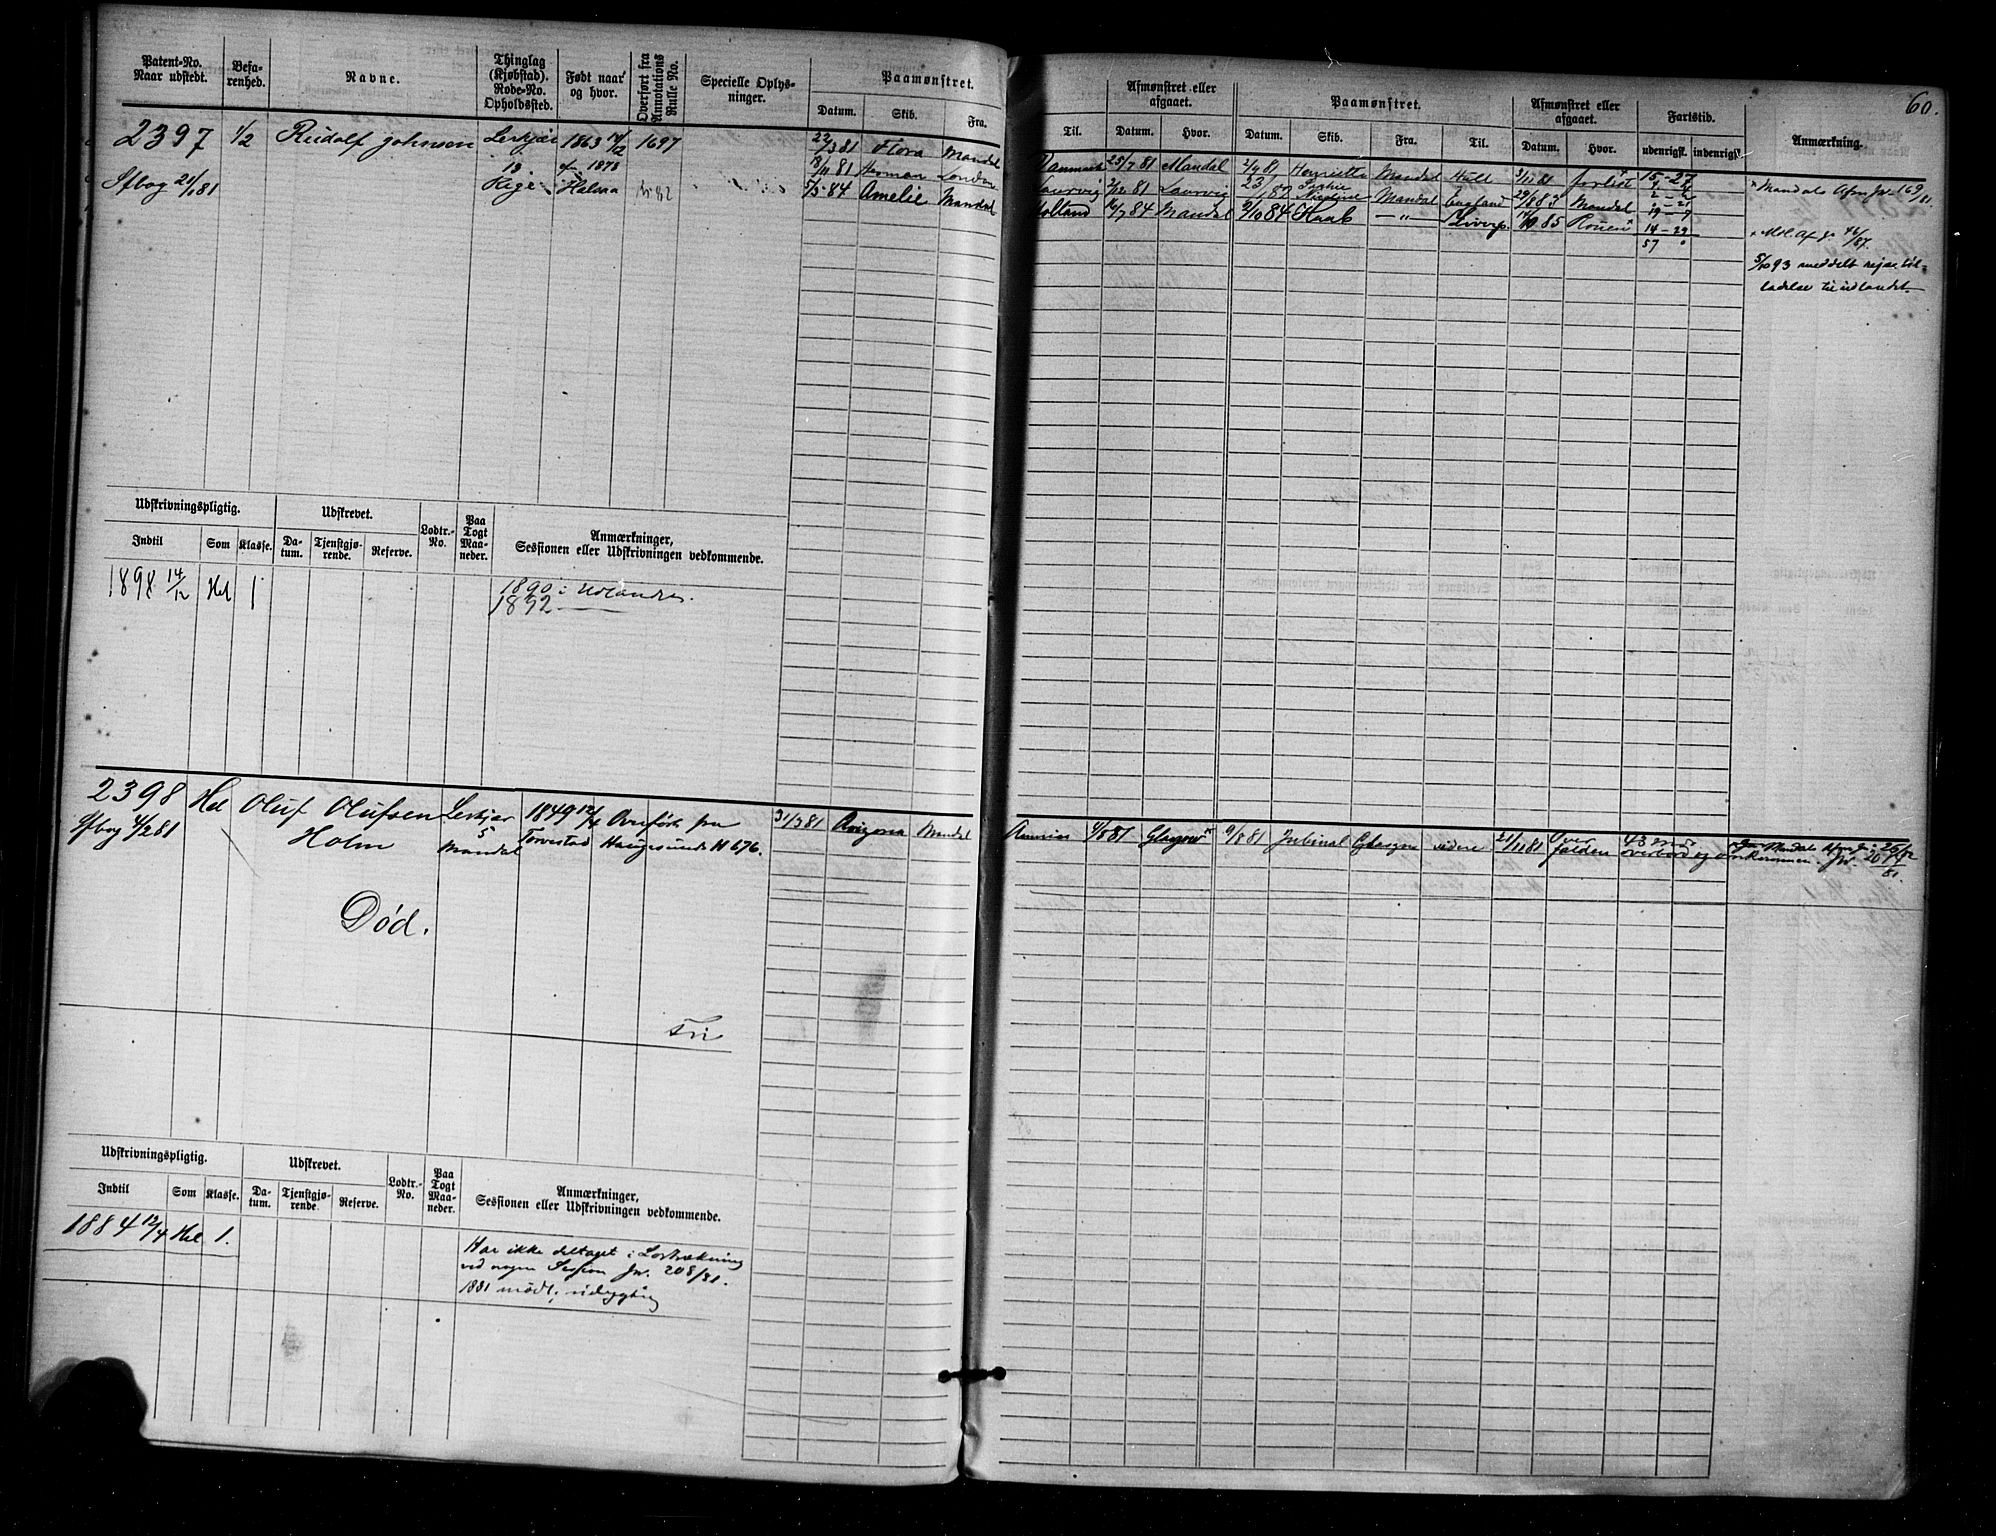 60.
Patent-No.
Naar udstedt.
Befa-
renhed.
Navne.
Thinglag
(Kjøbstad).
Rode-No.
Opholdssted.
Født naar
og hvor.
Overført fra
Annotations
Rulle No.
Specielle Oplys-
ninger.
Paamønstret.
Datum. Skib. Fra.
Til.
Afmønstret eller
afgaaet.
Datum. Hvor.
Paamønstret.
Datum. Skib. Fra. Til.
Afmønstret eller
afgaaet.
Datum. Hvor.
Fartstid.
udenrigsk. indenrigsk.
Anmærkning.
2397 1/2 Rudolf Johnsen 1863 14/12 1697
Sfbog 21/1 81
22/3 81 Flora Mandal Danmark 25/7 81 Mandal 2/9 81 Henriette Mandal Hull forlist 15-27
18/11 81 Herman London Laurvig 2/12 81 Laurvig Mandal England Mandal
5/5 84 Amelie Mandal Holland 16/7 84 Mandal 9/10 84 Haab — „ — Liverp. 85 Rouen 14-29
57
Mandals
5/10 93 meddelt rejsetil-
ladelse til udlandet.
Udskrivningspligtig.
Indtil Som Klasse.
Udskrevet.
Da-
tum.
Tjenstgjø-
rende.
Reserve.
Lodtr.-
No.
Paa
Togt
Maa-
neder.
Anmærkninger,
Sessionen eller Udskrivningen vedkommende.
1898 14/12 Hel 1
1890 i Udlandet.
1892 —
2398 Hel Oluf Olufsen
Holm
Sfbog 4/2 81
5
Mandal
1849 12/4
Torvestad
Overført fra
Haugesunds H 676.
31/3 81 Arizona Mandal 4/8 81 Glasgow 9/8 81 Jubinal Glasgow videre 21/11 81 Over
falden overbord og omkommen.
Død.
Fri
Udskrivningspligtig.
Indtil Som Klasse.
Udskrevet.
Da-
tum.
Tjenstgjø-
rende.
Reserve.
Lodtr.-
No.
Paa
Togt
Maa-
neder.
Anmærkninger,
Sessionen eller Udskrivningen vedkommende.
1884 12/4 Hel 1.
Har ikke deltaget i Lodtrækning
ved nogen Session Jr. 208/81.
1881 mødt, udygtig